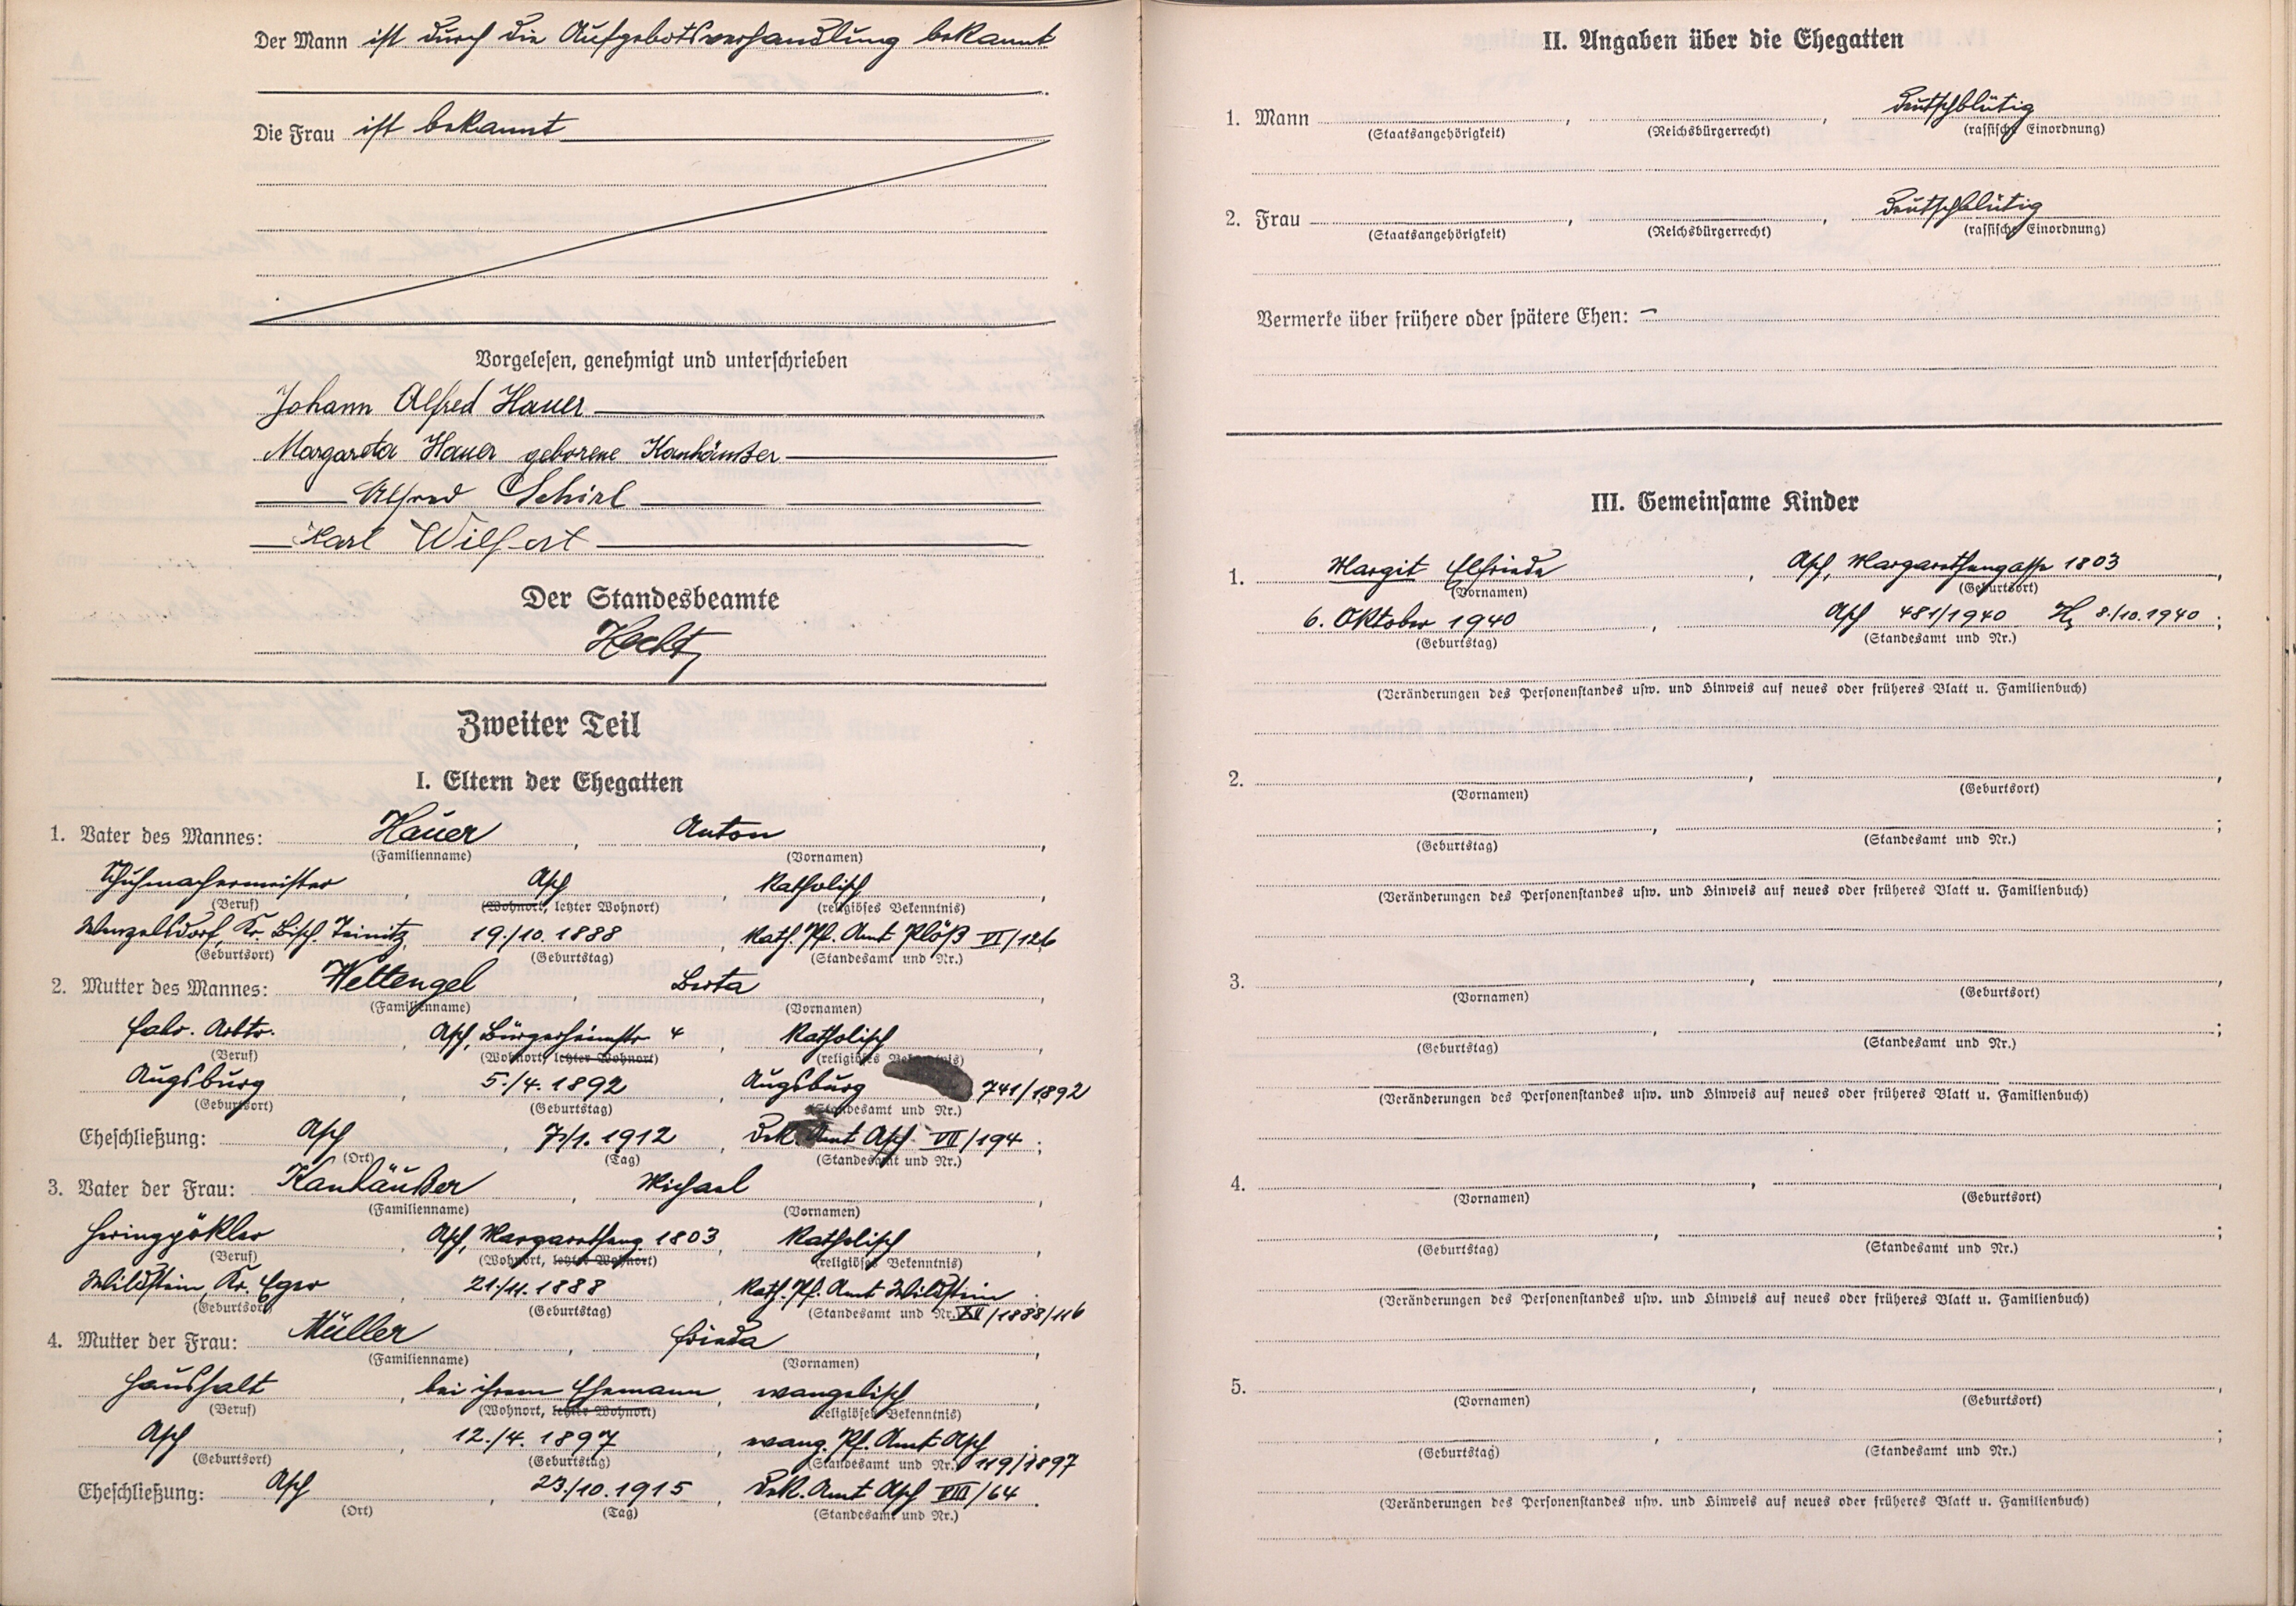 Der Mann ist durch die Aufgebotsverhandlung bekannt
Die Frau ist bekannt
Vorgelesen, genehmigt und unterschrieben
Johann Alfred Hauer
Margareta Hauer geborene Kanhäußer
Alfred Schirl
Karl Wilfert
Der Standesbeamte
Hecht
Zweiter Teil
I. Eltern der Ehegatten
1. Vater des Mannes: Hauer, Anton,
(Familienname) (Vornamen)
Schuhmachermeister, Asch, katholisch,
(Beruf) (Wohnort, letzter Wohnort) (religiöses Bekenntnis)
Wenzelsdorf, Kr. Bisch. Teinitz, 19./10. 1888, Kath. Pf. Amt Plöß VI/126
(Geburtsort) (Geburtstag) (Standesamt und Nr.)
2. Mutter des Mannes: Wettengel, Berta,
(Familienname) (Vornamen)
Fabr. Arbtr., Asch, Bürgerheimstr 4, katholisch,
(Beruf) (Wohnort, letzter Wohnort) (religiöses Bekenntnis)
Augsburg, 5./4. 1892, Augsburg 741/1892
(Geburtsort) (Geburtstag) (Standesamt und Nr.)
Eheschließung: Asch, 7./1. 1912, Dek. Amt Asch VII/194;
(Ort) (Tag) (Standesamt und Nr.)
3. Vater der Frau: Kanhäußer, Michael,
(Familienname) (Vornamen)
Asch, Margaretheng. 1803, katholisch,
(Beruf) (Wohnort, letzter Wohnort) (religiöses Bekenntnis)
Wildstein, Kr. Eger, 21./11. 1888, Kath. Pf. Amt Wildstein;
(Geburtsort) (Geburtstag) (Standesamt und Nr.) XV/1888/116
4. Mutter der Frau: Müller, Frieda,
(Familienname) (Vornamen)
Haushalt, bei ihrem Ehemann, evangelisch,
(Beruf) (Wohnort, letzter Wohnort) (religiöses Bekenntnis)
Asch, 12./4. 1897, evang. Pf. Amt Asch;
(Geburtsort) (Geburtstag) (Standesamt und Nr.) 119/1897
Eheschließung: Asch, 23./10. 1915, Dek. Amt Asch VIII/64.
(Ort) (Tag) (Standesamt und Nr.)
II. Angaben über die Ehegatten
1. Mann , , deutschblütig
(Staatsangehörigkeit) (Reichsbürgerrecht) (rassische Einordnung)
2. Frau , , deutschblütig
(Staatsangehörigkeit) (Reichsbürgerrecht) (rassische Einordnung)
Vermerke über frühere oder spätere Ehen: –
III. Gemeinsame Kinder
1. Margit Elfrieda, Asch, Margarethengasse 1803,
(Vornamen) (Geburtsort)
6. Oktober 1940, Asch 481/1940 H, 8./10. 1940;
(Geburtstag) (Standesamt und Nr.)
(Veränderungen des Personenstandes usw. und Hinweis auf neues oder früheres Blatt u. Familienbuch)
2. , ,
(Vornamen) (Geburtsort)
, ;
(Geburtstag) (Standesamt und Nr.)
(Veränderungen des Personenstandes usw. und Hinweis auf neues oder früheres Blatt u. Familienbuch)
3. , ,
(Vornamen) (Geburtsort)
, ;
(Geburtstag) (Standesamt und Nr.)
(Veränderungen des Personenstandes usw. und Hinweis auf neues oder früheres Blatt u. Familienbuch)
4. , ,
(Vornamen) (Geburtsort)
, ;
(Geburtstag) (Standesamt und Nr.)
(Veränderungen des Personenstandes usw. und Hinweis auf neues oder früheres Blatt u. Familienbuch)
5. , ,
(Vornamen) (Geburtsort)
, ;
(Geburtstag) (Standesamt und Nr.)
(Veränderungen des Personenstandes usw. und Hinweis auf neues oder früheres Blatt u. Familienbuch)